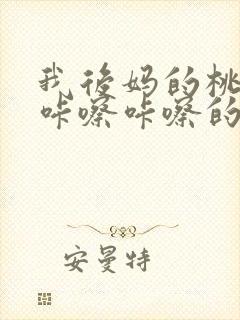 我后妈的桃
咔嚓咔嚓的
安曼特